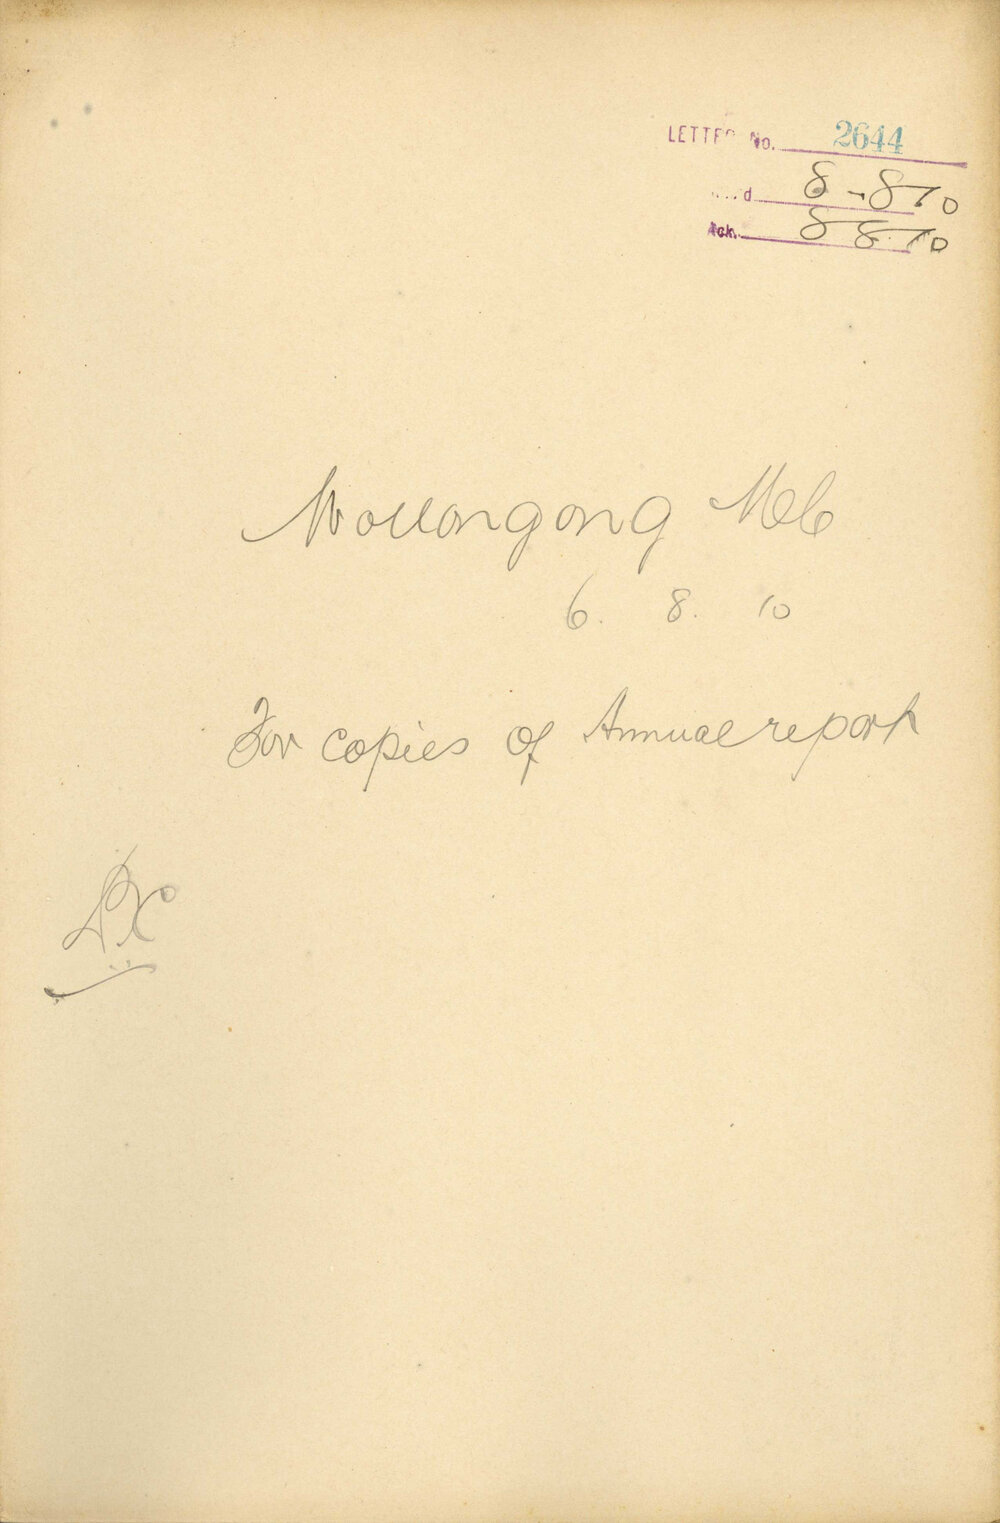 LETTER No. 2644
8-8-10
Ack. 8 8 10
Wollongong Mc
6. 8. 10
For copies of Annual report